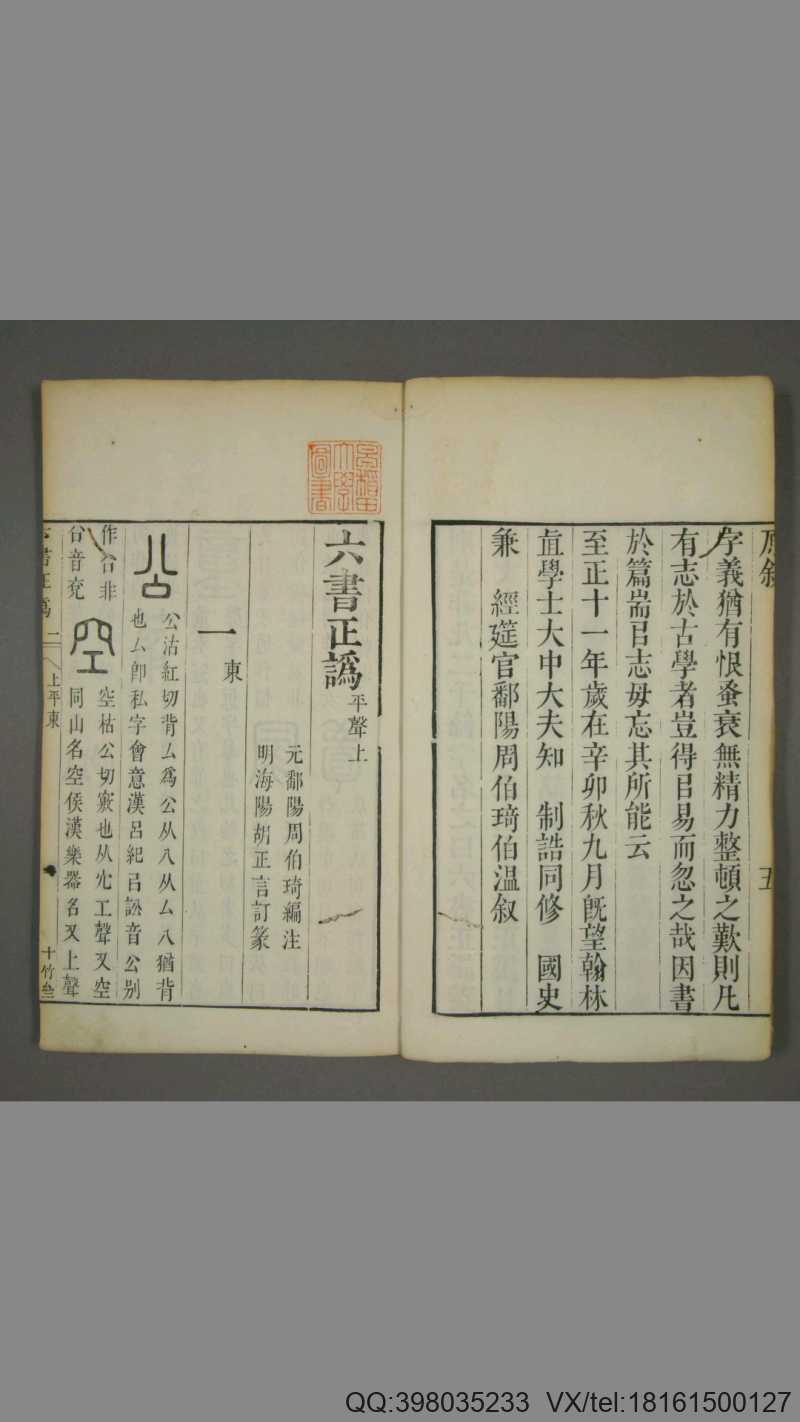 字義猶有恨蚤衰無精力整頓之歎則凡
有志於古學者豈得㠯易而忽之哉因書
於篇耑㠯志毋忘其所能云
至正十一年歲在辛卯秋九月旣望翰林
直學士大中大夫知 制誥同修 國史
兼 經筵官鄱陽周伯琦伯温叙
原叙 五
六書正譌 平聲上
元鄱陽周伯琦編注
明海陽胡正言訂篆
一東
公 公沽紅切背厶爲公从八从厶八猶背
也厶卽私字會意漢呂紀㠯訟音公别
作㕣非
㕣音兖
空 空枯公切竅也从穴工聲又空
同山名空侯漢樂器名又上聲
六書正譌 二 上平東 十竹
早稻田大學圖書
QQ:398035233 VX/tel:18161500127